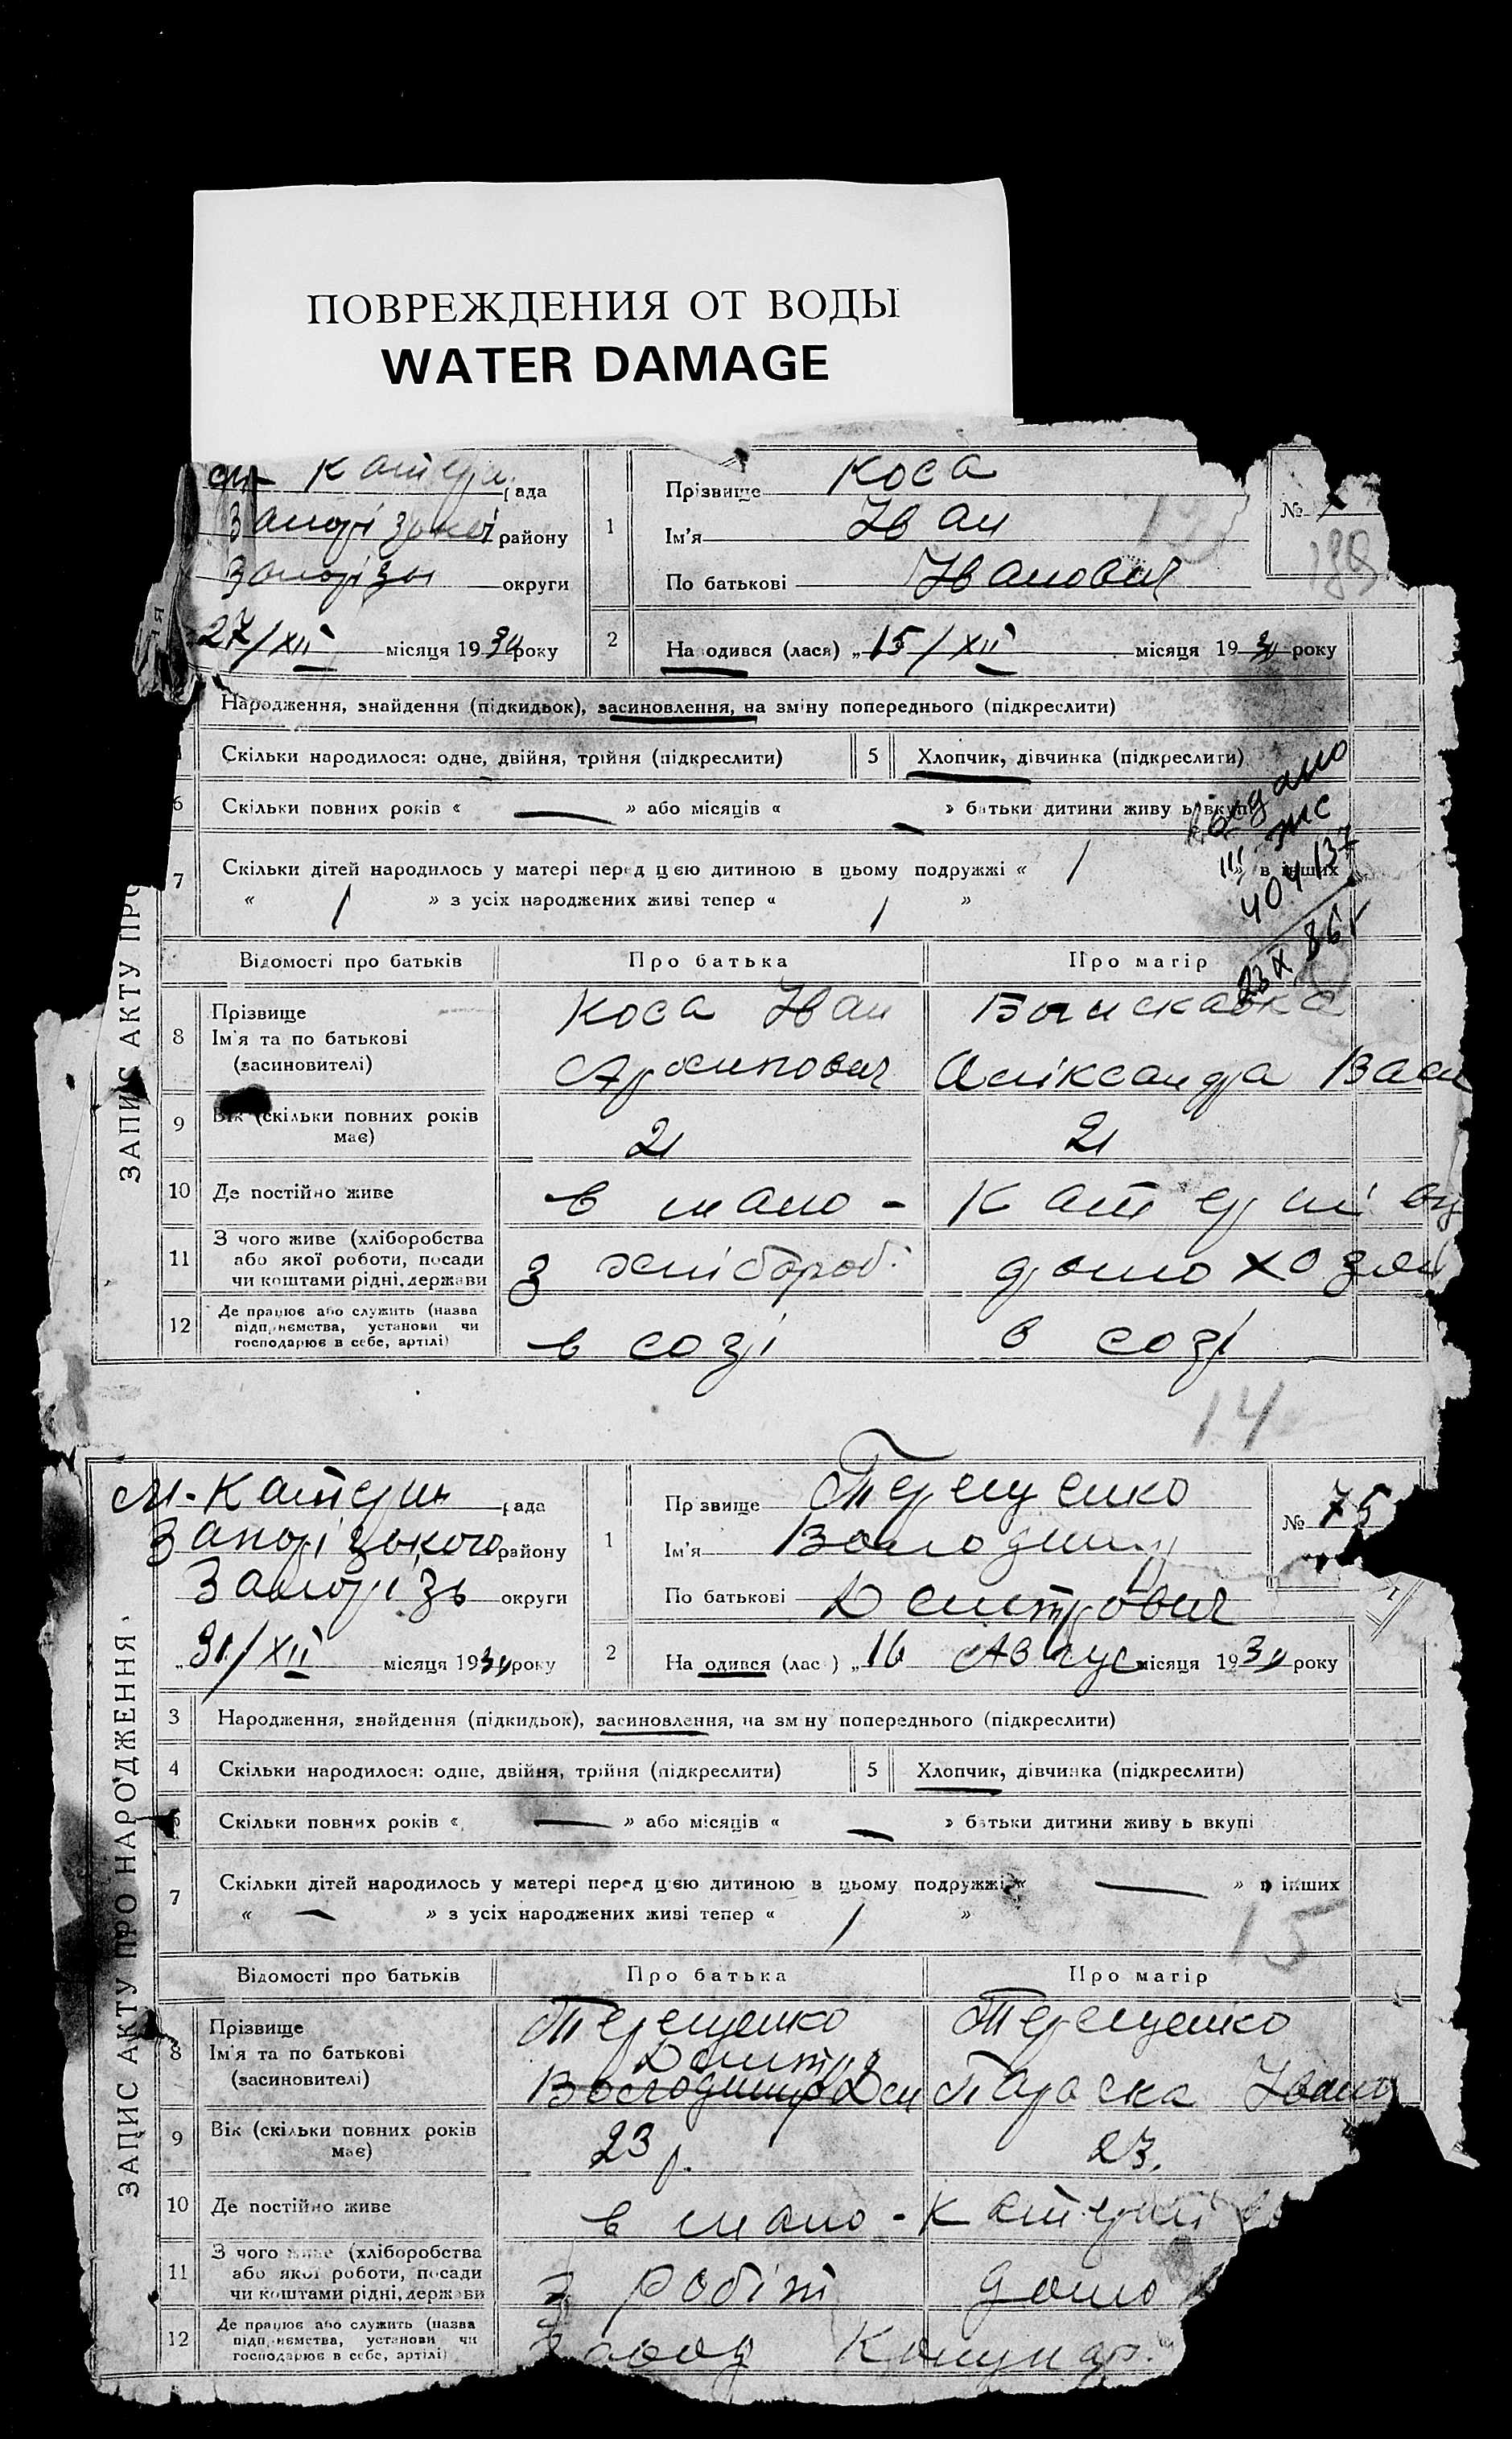 ПОВРЕЖДЕНИЯ ОТ ВОДЫ
WATER DAMAGE
рада
району
округи
27/XII місяця 1930 року
1
Прізвище Коса
Ім'я Іван
По батькові Іванович
№
2
На одився (лася) „15/XII місяця 1930 року
Народження, знайдення (підкидьок), засиновлення, на зміну попереднього (підкреслити)
Скільки народилося: одне, двійня, трійня (підкреслити)
5 Хлопчик, дівчинка (підкреслити)
6 Скільки повних років « — » або місяців « — » батьки дитини живу ь вкупі
7 Скільки дітей народилось у матері перед цією дитиною в цьому подружжі « / » в інших
« / » з усіх народжених живі тепер « / »
видано
404137
23 IX 86г
ЗАПИС АКТУ ПРО
Відомості про батьків Про батька Про матір
8 Прізвище
Ім'я та по батькові
(засиновителі)
Коса Іван
Архипович
Олександра Васи
9 Вік (скільки повних років
має)
21 21
10 Де постійно живе в мало - Катерині вц
11 З чого живе (хліборобства
або якої роботи, посади
чи коштами рідні, держави
з хлібороб. домохозяй
12 Де працює або служить (назва
підприємства, установи чи
господарює в себе, артілі)
в созі в созі
14
М-Катерин рада
Запорізького району
Запорізь округи
„31/XII місяця 1930 року
1
Пр звище Терещенко
Ім'я Володимир
По батькові Дмитрович
№ 75
2
На одився (лас ) „16 Август місяця 1930 року
3 Народження, знайдення (підкидьок), засиновлення, на зм ну попереднього (підкреслити)
4 Скільки народилося: одне, двійня, трійня (підкреслити)
5 Хлопчик, дівчинка (підкреслити)
6 Скільки повних років « — » або місяців « — » батьки дитини живу ь вкупі
7 Скільки дітей народилось у матері перед цією дитиною в цьому подружжі « — » в інших
« — » з усіх народжених живі тепер « / »
15
ЗАПИС АКТУ ПРО НАРОДЖЕННЯ.
Відомості про батьків Про батька Про матір
8 Прізвище
Ім'я та по батькові
(засиновителі)
Терещенко
Дмитро
Володимир Дм
Терещенко
Параска Івано
9 Вік (скільки повних років
має)
23 р. 23.
10 Де постійно живе в мало - Катерині
11 З чого живе (хліборобства
або якої роботи, посади
чи коштами рідні, держави
з робіт домо
12 Де працює або служить (назва
підприємства, установи чи
господарює в себе, артілі)
Завод Комунар.